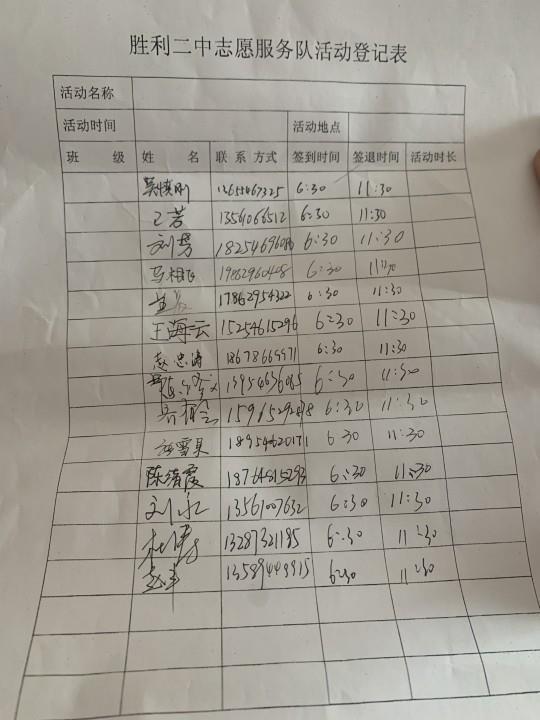 胜利二中志愿服务队活动登记表
活动名称
活动时间 活动地点
班 级 姓 名 联系方式 签到时间 签退时间 活动时长
6:30 11:30
丁芳 13561066512 6:30 11:30
刘芳 6:30 11:30
马相飞 19882960408 6:30 11:30
17862954322 6:30 11:30
王海云 15254615296 6:30 11:30
赵忠涛 18678669971 6:30 11:30
6:30 11:30
6:30 11:30
6:30 11:30
陈清霞 18764815293 6:30 11:30
刘永 13561007632 6:30 11:30
杜涛 13287321185 6:30 11:30
13589449915 6:30 11:30